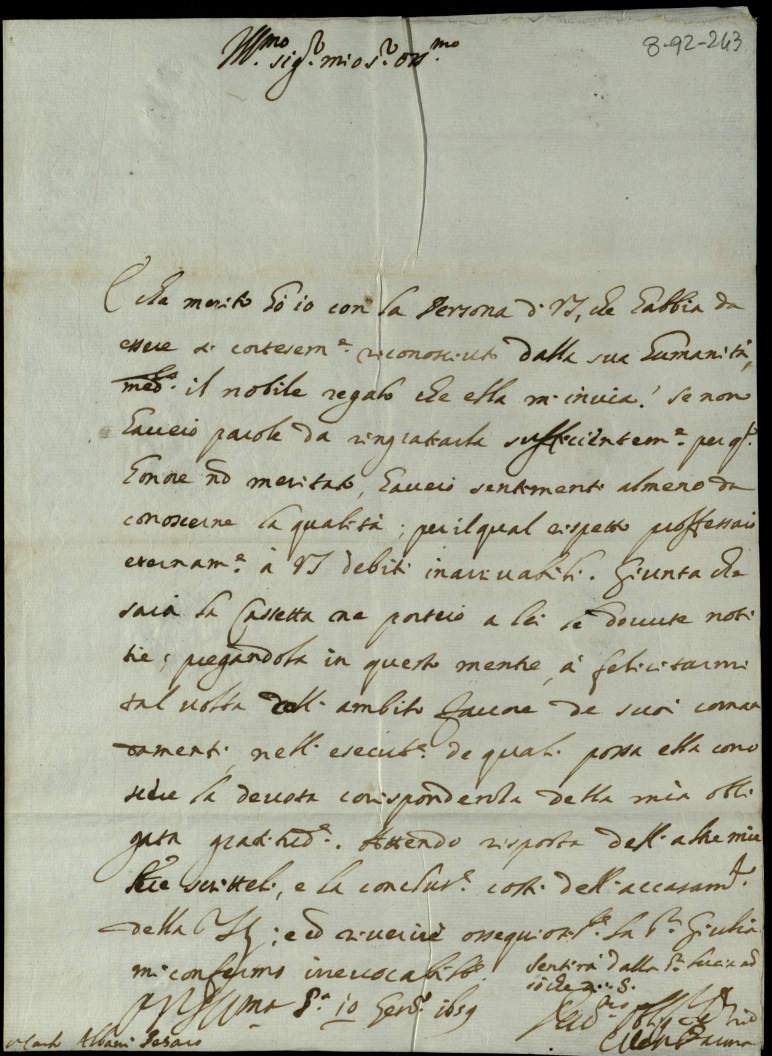 Ill.mo sig.r mio s.r oss.mo
8-92-243
Che merito hò io con la Persona di VS, che habbia da
essere sì cortesem.e riconosciuto dalla sua humanità,
med.e il nobile regalo che ella m'invia! Se non
haverò parole da ringratiarla sufficientem.e per q.to
honore nõ meritato, haverò sentimenti almeno da
conoscerne la qualità; per il qual rispetto professarò
eternam.e à VS debiti inarrivabili. Giunta che
sarà la Cassetta ne porterò a lei le dovute noti
tie; pregandola in questo mentre, à felicitarmi
tal volta dell'ambito favore de suoi coman
damenti, nell'esecut.e de quali possa ella cono
scere la devota corispondenza della mia obli
gata gratitud.e. Attendo risposta dell'altre mie
scritteli, e la conclus.e costì dell'accasam.to
della ; ed riverire ossequiosis.te la S.ra Giulia
mi confermo irrevocabil.te
Sentirà dalla S.ra
P.a 10 Gen.ro 1659
Carlo Albani Pesaro